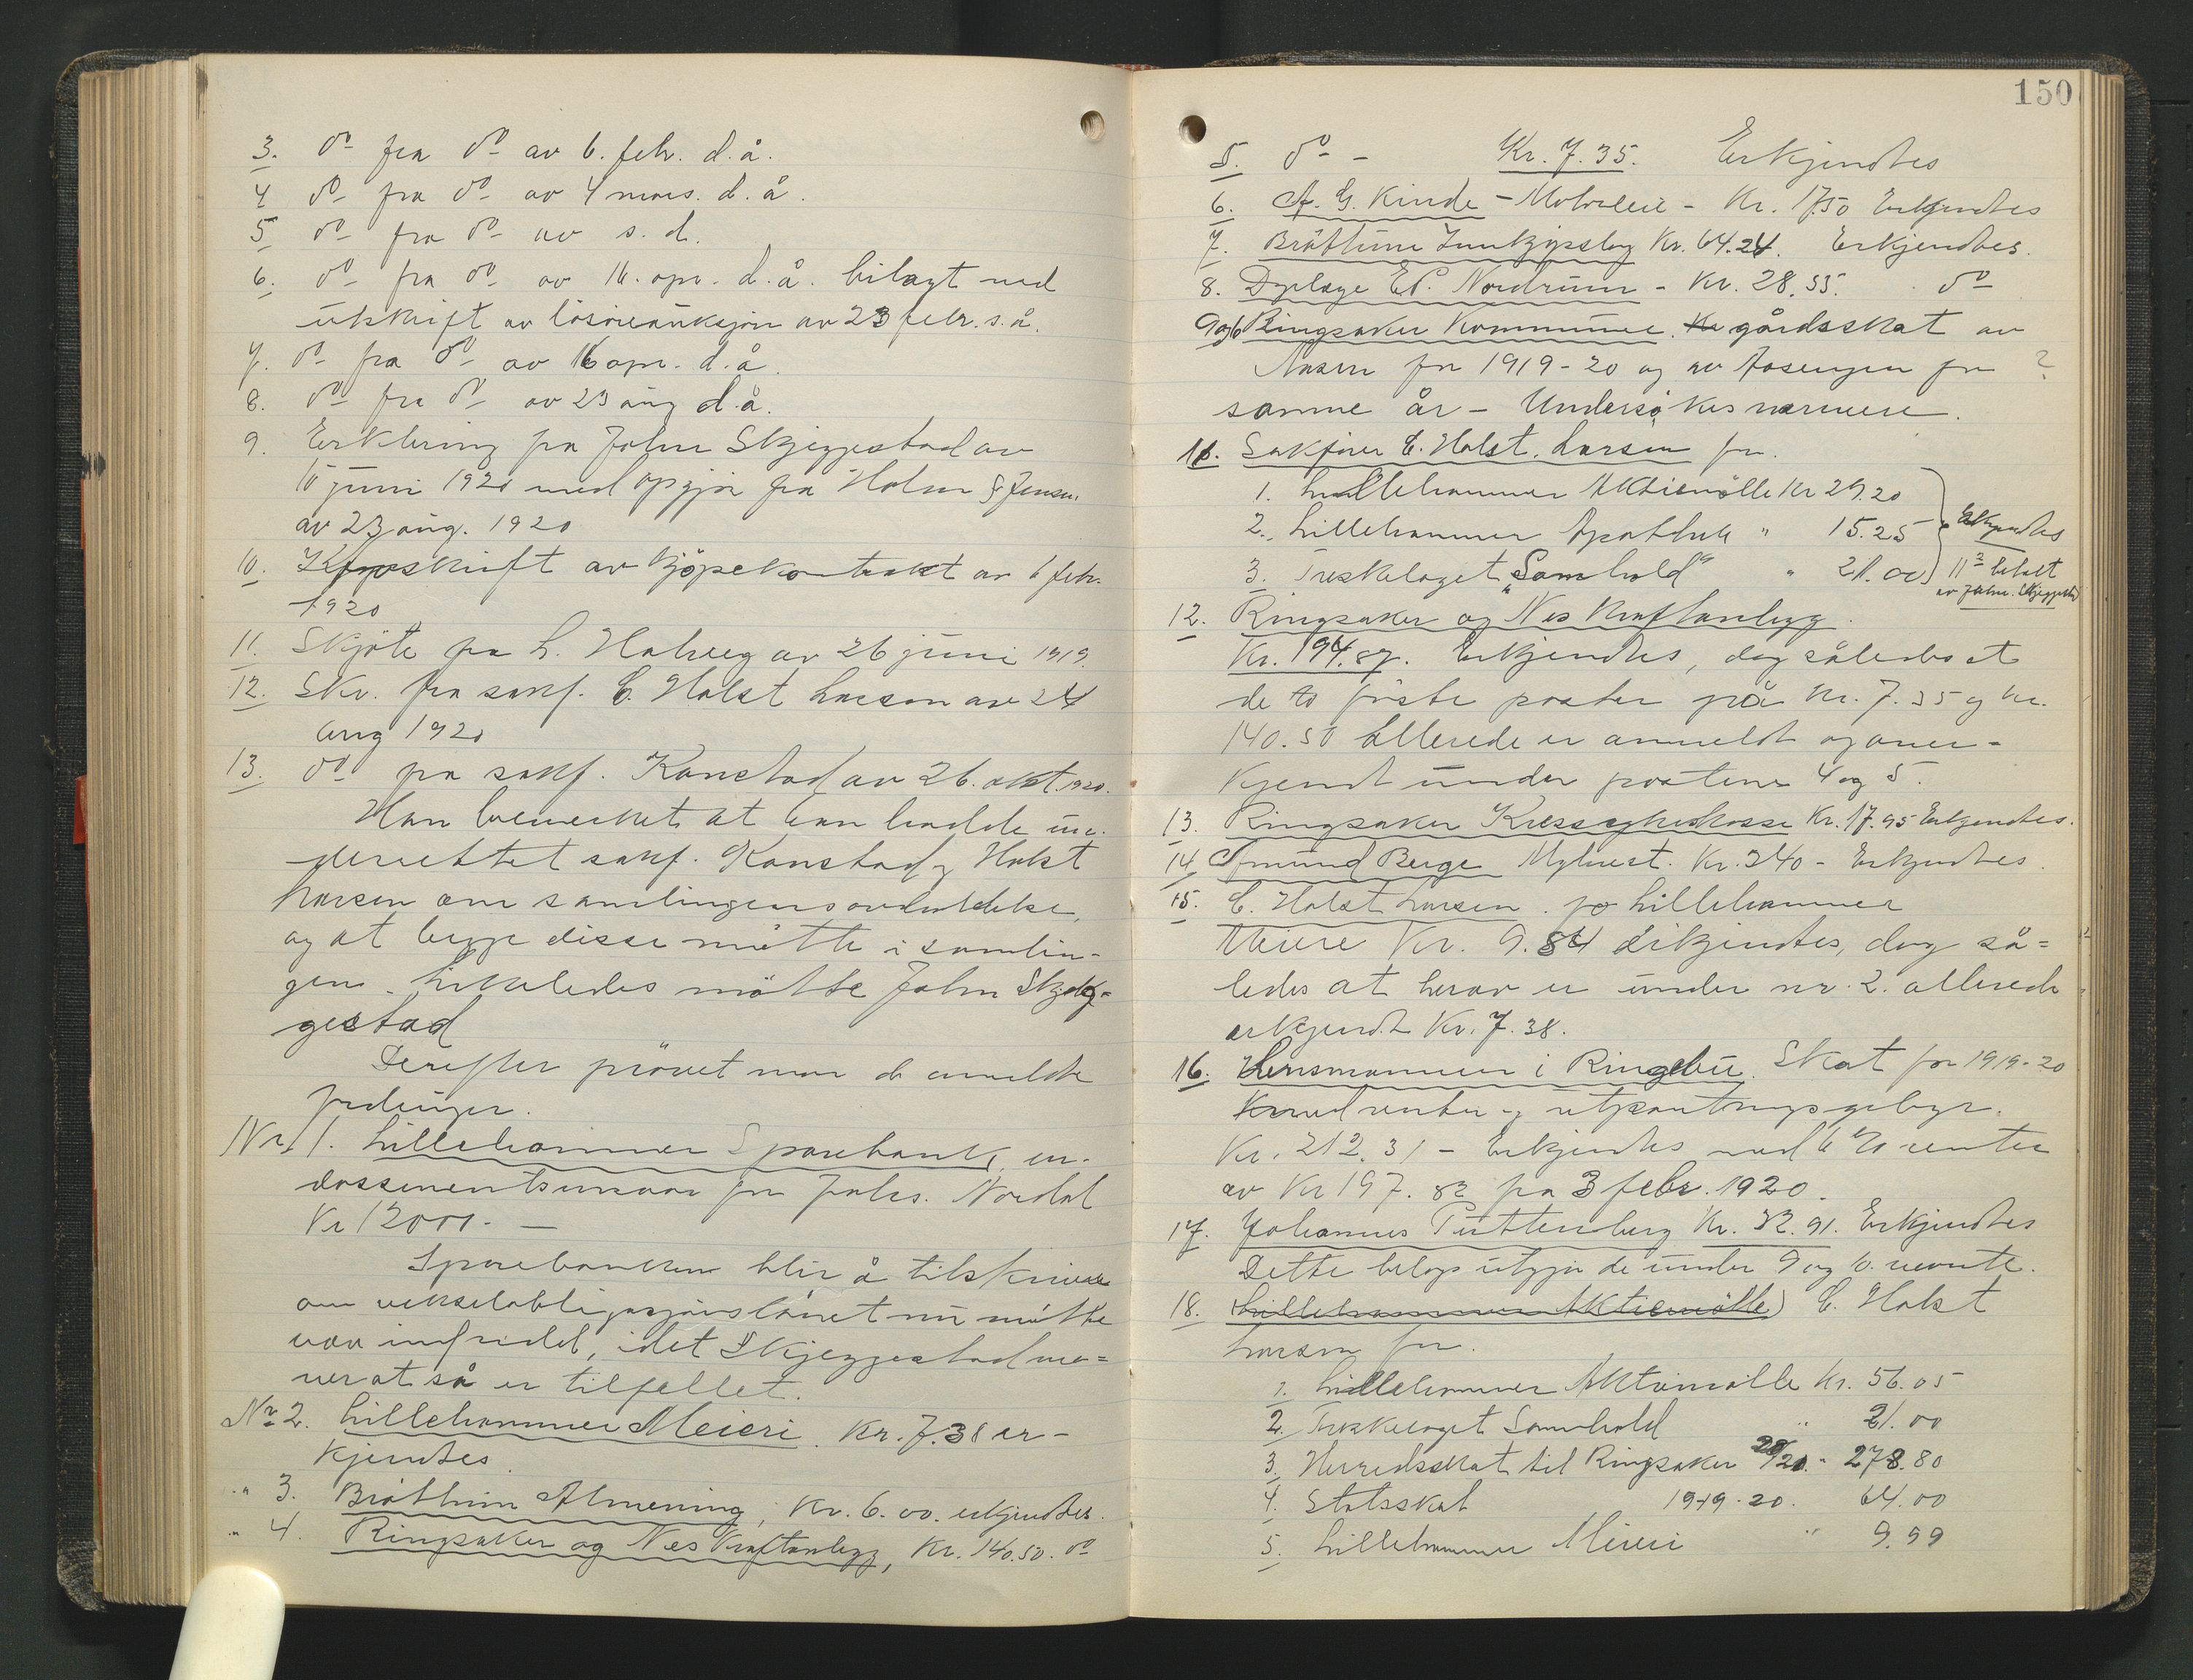 3. do fra do av 6. febr. d.å.
4 do fra do av 4 mars. d.å.
5 do fra do av s.d.
6. do fra do av 16. apr. d.å. bilagt med
utskrift av lösöreauksjon av 23 febr. s.å.
7. do fra do av 16 apr. d.å.
8. do fra do av 23 aug d.å.
9. Erklæring fra John Skjeggestad av
10 juni 1920 med opgjör fra Holm & Jensen
av 23 aug. 1920
10. avskrift av kjöpekontrakt av 6 febr.
1920
11. Skjöte fra L. Halveg av 26 juni 1919.
12. Skr. fra sakf. C. Holst Larsen av 24
aug 1920
13. do fra sakf. Kanstad av 26. okt. 1920.
Han bemerket at han hadde un-
derrettet sakf. Kanstad og Holst
Larsen om samlingens avholdelse,
og at begge disse mötte i samlin-
gen. Likeledes mötte John Skjeg-
gestad
Derefter prövet man de anmeldte
fordringer.
Nr. 1. Lillehammer Sparebank, en-
dossementsansvar for Johs. Nordal
Kr 12000.—
Sparebanken blir å tilskrive
om vekselobligasjonslånet nu måtte
være innfridd, idet Skjeggestad me-
ner at så er tilfellet.
Nr 2. Lillehammer Meieri. Kr. 7.38 er-
kjendtes
" 3. Bröttum Almenning, Kr. 6.00. erkjendtes.
" 4. Ringsaker og Nes Kraftanlegg, Kr. 140.50. do
150
5. do - Kr. 7.35. Erkjendtes
6. A. G. Kinde - Motorleie - Kr. 17.50 Erkjendtes
7. Bröttum Innkjöpslag Kr. 64.24. Erkjendtes.
8. Dyrlæge E. P. Nordrum - Kr. 28.55. do
9 og 10 Ringsaker Kommune. Kr gårdsskat av
for 1919-20 og av Aasengen for ?
samme år - Undersökes nærmere.
11. Sakförer C. Holst Larsen for.
1. Lillehammer Aktiemölle Kr 29.20
2. Lillehammer Apothek " 15.25 Erkjendtes
3. Treskelaget "Samhold" " 21.00 11 3 betalt
av John Skjeggestad
12. Ringsaker og Nes Kraftanlegg.
Kr. 194.87. Erkjendtes, dog således at
de to förste poster på Kr. 7.35 og Kr.
140.50 allerede er anmeldt og aner-
kjendt under postene 4 og 5.
13. Ringsaker Kredssykekasse Kr. 17.95 Erkjendtes.
14. Amund Berge Kr. 240 - Erkjendtes.
15. C. Holst Larsen. for Lillehammer
Meieri Kr. 9.84 Erkjendtes, dog så=
ledes at herav er under nr. 2. allerede
erkjendt Kr. 7.38.
16. Lensmannen i Ringebu. Skat for 1919-20
med renter og utpantningsgebyr.
Kr. 212.31 - Erkjendtes med 6 % renter
av Kr 197.82 fra 3 febr. 1920.
17. Johannes Puttenberg Kr. 32.91. Erkjendtes
Dette belöp utgjör de under 9 og 10. nevnte.
18. (Lillehammer Aktiemölle) C. Holst
Larsen for.
1. Lillehammer Aktiemölle Kr. 56.05
2. Treskelaget Samhold " 21.00
3. Herredsskat til Ringsaker 20/20. " 278.80
4. Statsskat 1919-20. 64.00
5. Lillehammer Meieri " 9.99